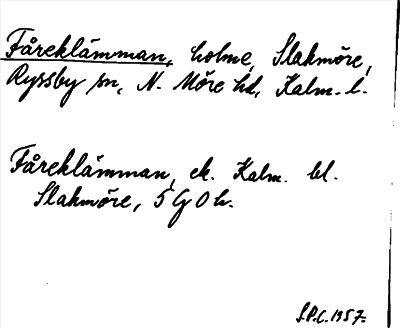 Fåreklämman, holme, Slakmöre,
Ryssby sn, N. Möre hd, Kalm. l.
Fåreklämman, ek. Kalm. bl.
Slakmöre, 5 G O h.
S.P.C. 1957.